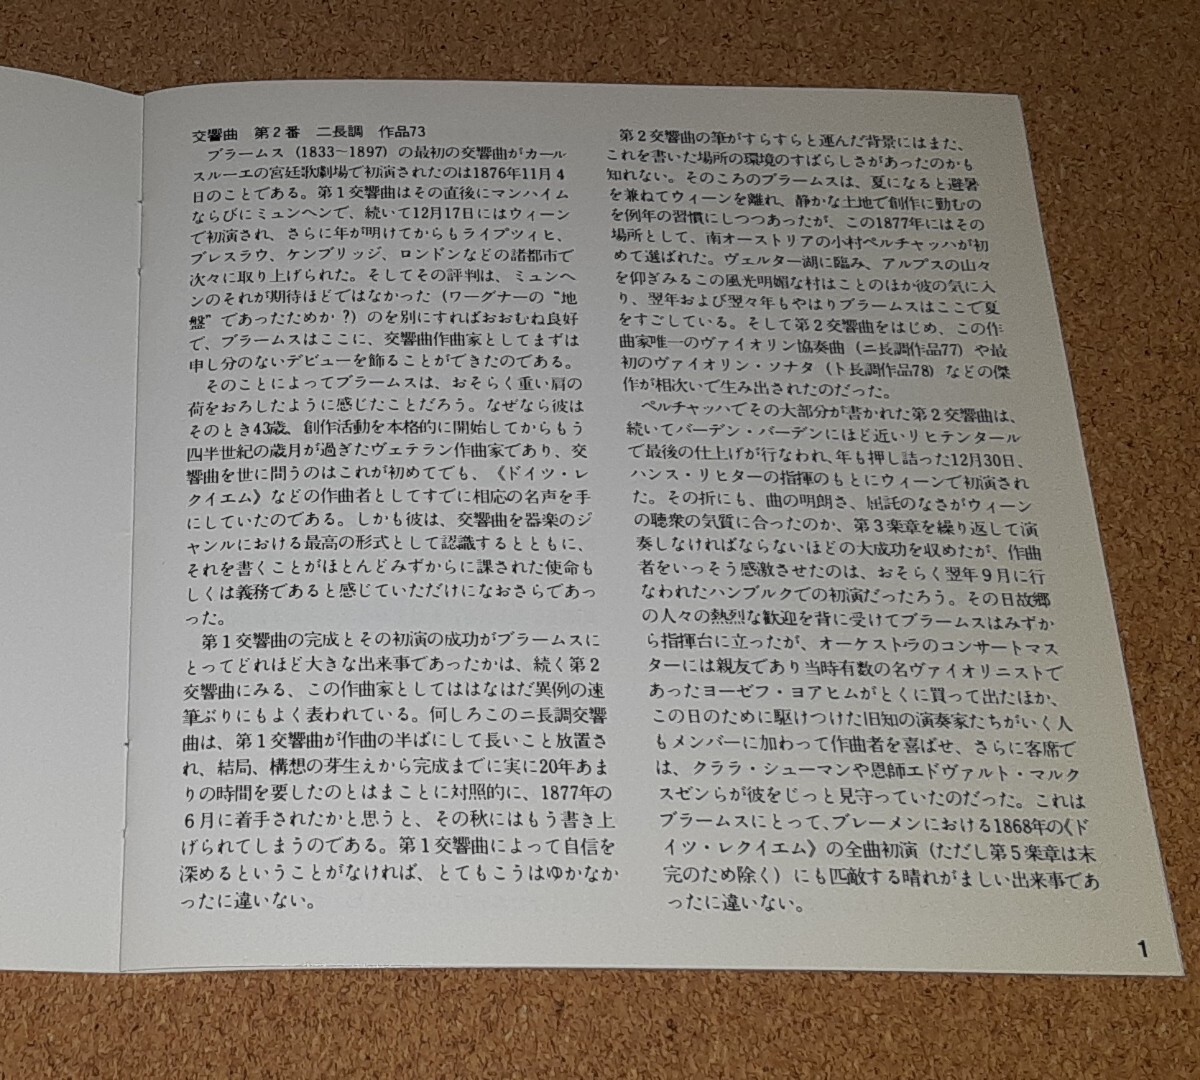 交響曲　第２番　ニ長調　作品73
　ブラームス（1833〜1897）の最初の交響曲がカール
スルーエの宮廷歌劇場で初演されたのは1876年11月４
日のことである。第１交響曲はその直後にマンハイム
ならびにミュンヘンで、続いて12月17日にはウィーン
で初演され、さらに年が明けてからもライプツィヒ、
ブレスラウ、ケンブリッジ、ロンドンなどの諸都市で
次々に取り上げられた。そしてその評判は、ミュンヘ
ンのそれが期待ほどではなかった（ワーグナーの“地
盤”であったためか？）のを別にすればおおむね良好
で、ブラームスはここに、交響曲作曲家としてまずは
申し分のないデビューを飾ることができたのである。
　そのことによってブラームスは、おそらく重い肩の
荷をおろしたように感じたことだろう。なぜなら彼は
そのとき43歳。創作活動を本格的に開始してからもう
四半世紀の歳月が過ぎたヴェテラン作曲家であり、交
響曲を世に問うのはこれが初めてでも、《ドイツ・レ
クイエム》などの作曲者としてすでに相応の名声を手
にしていたのである。しかも彼は、交響曲を器楽のジ
ャンルにおける最高の形式として認識するとともに、
それを書くことがほとんどみずからに課された使命も
しくは義務であると感じていただけになおさらであっ
った。
　第１交響曲の完成とその初演の成功がブラームスに
とってどれほど大きな出来事であったかは、続く第２
交響曲にみる、この作曲家としてははなはだ異例の速
筆ぶりにもよく表われている。何しろこのニ長調交響
曲は、第１交響曲が作曲の半ばにして長いこと放置さ
れ、結局、構想の芽生えから完成までに実に20年あま
りの時間を要したのとはまことに対照的に、1877年の
６月に着手されたかと思うと、その秋にはもう書き上
げられてしまうのである。第１交響曲によって自信を
深めるということがなければ、とてもこうはゆかなか
ったに違いない。
　第２交響曲の筆がすらすらと運んだ背景にはまた、
これを書いた場所の環境のすばらしさがあったのかも
知れない。そのころのブラームスは、夏になると避暑
を兼ねてウィーンを離れ、静かな土地で創作に勤むの
を例年の習慣にしつつあったが、この1877年にはその
場所として、南オーストリアの小村ペルチャッハが初
めて選ばれた。ヴェルター湖に臨み、アルプスの山々
を仰ぎみるこの風光明媚な村はことのほか彼の気に入
り、翌年および翌々年もやはりブラームスはここで夏
をすごしている。そして第２交響曲をはじめ、この作
曲家唯一のヴァイオリン協奏曲（ニ長調作品77）や最
初のヴァイオリン・ソナタ（ト長調作品78）などの傑
作が相次いで生み出されたのだった。
　ペルチャッハでその大部分が書かれた第２交響曲は、
続いてバーデン・バーデンにほど近いリヒテンタール
で最後の仕上げが行なわれ、年も押し詰った12月30日、
ハンス・リヒターの指揮のもとにウィーンで初演され
た。その折にも、曲の明朗さ、屈託のなさがウィーン
の聴衆の気質に合ったのか、第３楽章を繰り返して演
奏しなければならないほどの大成功を収めたが、作曲
者をいっそう感激させたのは、おそらく翌年９月に行
なわれたハンブルクでの初演だったろう。その日故郷
の人々の熱烈な歓迎を背に受けてブラームスはみずか
ら指揮台に立ったが、オーケストラのコンサートマス
ターには親友であり当時有数の名ヴァイオリニストで
あったヨーゼフ・ヨアヒムがとくに買って出たほか、
この日のために駆けつけた旧知の演奏家たちがいく人
もメンバーに加わって作曲者を喜ばせ、さらに客席で
は、クララ・シューマンや恩師エドヴァルト・マルク
スゼンらが彼をじっと見守っていたのだった。これは
ブラームスにとって、ブレーメンにおける1868年の《ド
イツ・レクイエム》の全曲初演（ただし第５楽章は未
完のため除く）にも匹敵する晴れがましい出来事であ
ったに違いない。
1